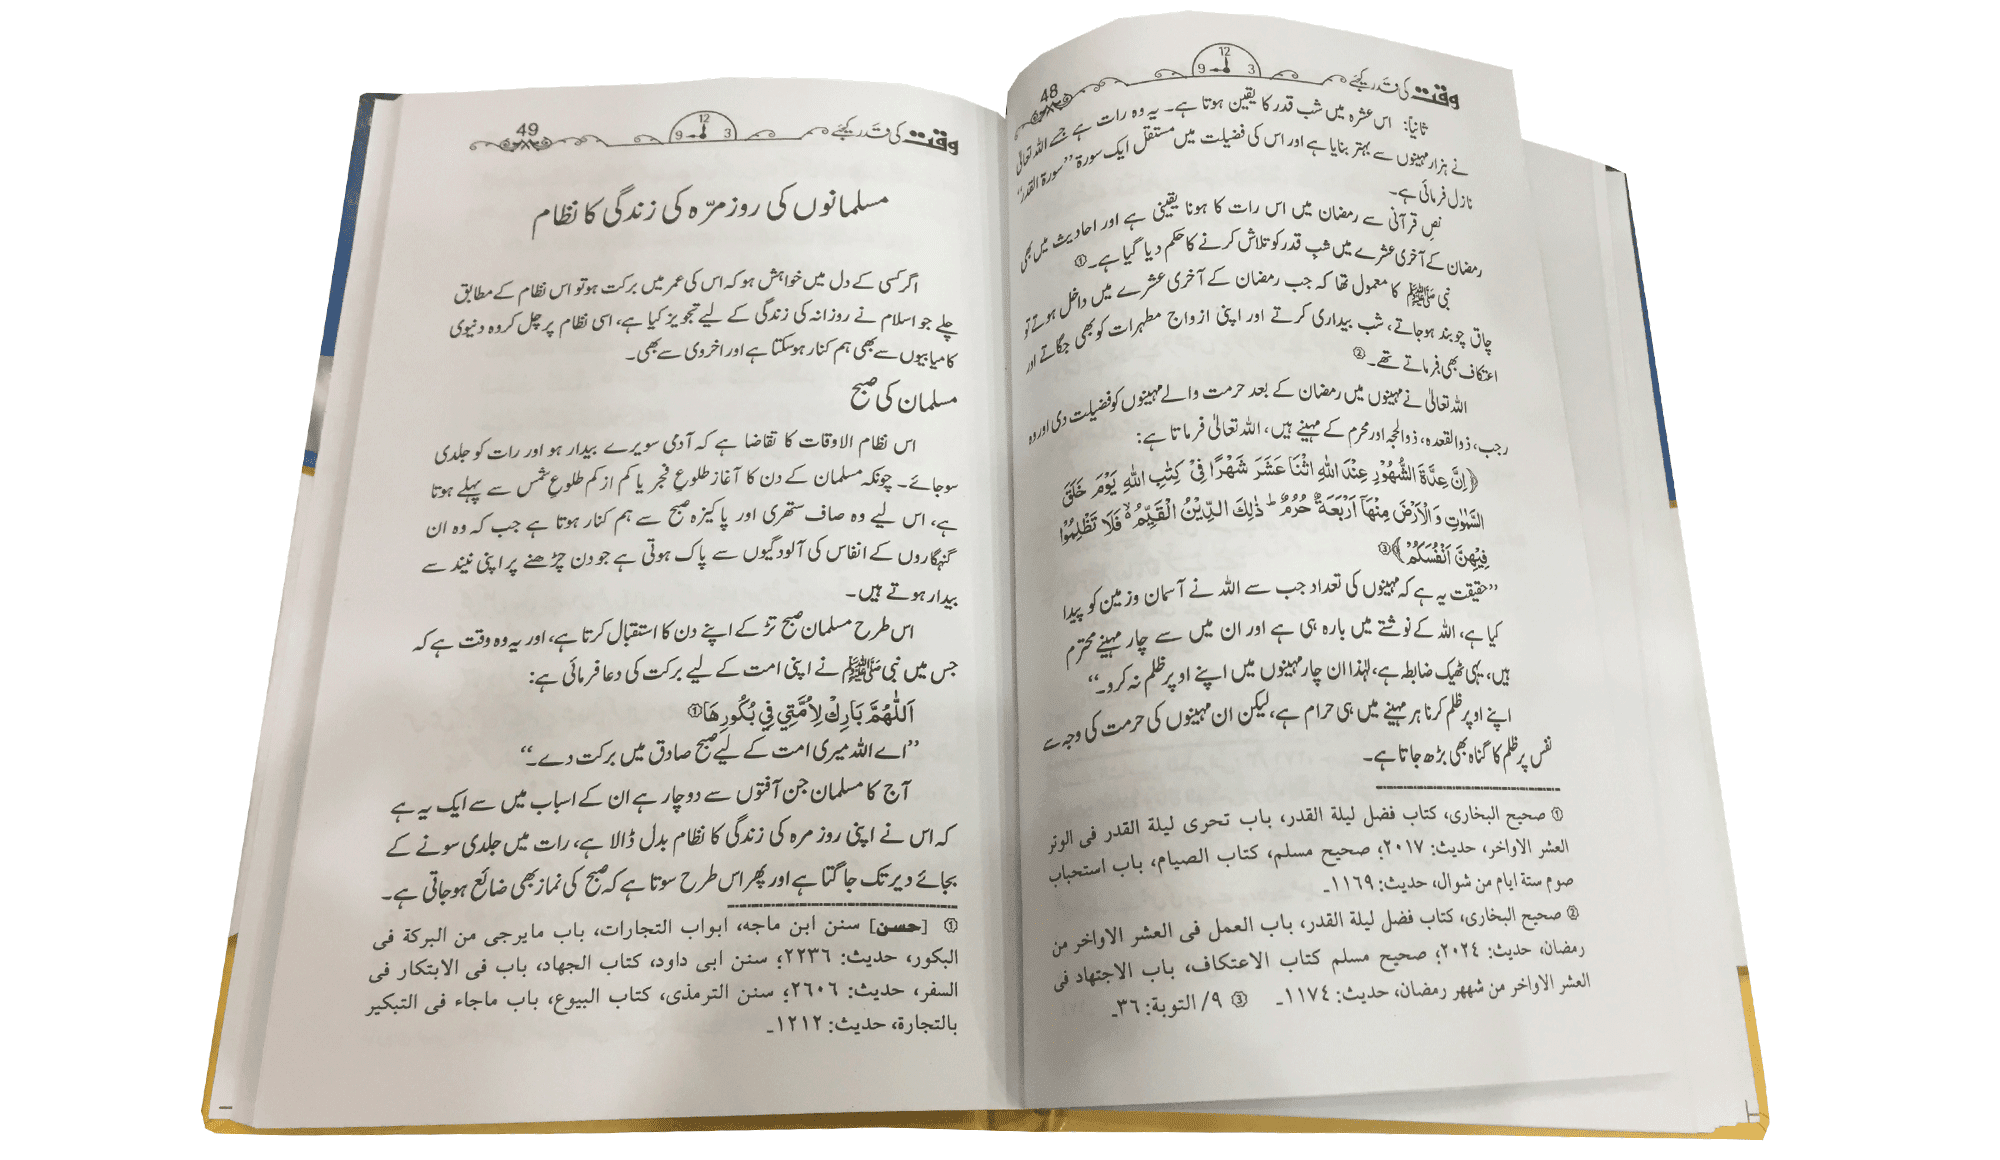 وقت کی قدر کیجئے
12
9 3
48
ثانیاً: اس عشرہ میں شب قدر کا یقین ہوتا ہے۔ یہ وہ رات ہے جسے اللہ تعالیٰ
نے ہزار مہینوں سے بہتر بنایا ہے اور اس کی فضیلت میں مستقل ایک سورۃ ’’سورۃ القدر‘‘
نازل فرمائی ہے۔
نصِ قرآنی سے رمضان میں اس رات کا ہونا یقینی ہے اور احادیث میں بھی
رمضان کے آخری عشرے میں شبِ قدر کو تلاش کرنے کا حکم دیا گیا ہے۔①
نبی ﷺ کا معمول تھا کہ جب رمضان کے آخری عشرے میں داخل ہوتے تو
چاق چوبند ہوجاتے، شب بیداری کرتے اور اپنی ازواج مطہرات کو بھی جگاتے اور
اعتکاف بھی فرماتے تھے۔②
اللہ تعالیٰ نے مہینوں میں رمضان کے بعد حرمت والے مہینوں کو فضیلت دی اور وہ
رجب، ذوالقعدہ، ذوالحجہ اور محرم کے مہینے ہیں، اللہ تعالیٰ فرماتا ہے:
﴿اِنَّ عِدَّةَ الشُّهُوْرِ عِنْدَ اللّٰهِ اثْنَا عَشَرَ شَهْرًا فِيْ كِتٰبِ اللّٰهِ يَوْمَ خَلَقَ
السَّمٰوٰتِ وَالْاَرْضَ مِنْهَآ اَرْبَعَةٌ حُرُمٌ ؕ ذٰلِكَ الدِّيْنُ الْقَيِّمُ ۙ فَلَا تَظْلِمُوْا
فِيْهِنَّ اَنْفُسَكُمْ﴾③
’’حقیقت یہ ہے کہ مہینوں کی تعداد جب سے اللہ نے آسمان و زمین کو پیدا
کیا ہے، اللہ کے نوشتے میں بارہ ہی ہے اور ان میں سے چار مہینے محترم
ہیں، یہی ٹھیک ضابطہ ہے، لہٰذا ان چار مہینوں میں اپنے اوپر ظلم نہ کرو۔‘‘
اپنے اوپر ظلم کرنا ہر مہینے میں ہی حرام ہے، لیکن ان مہینوں کی حرمت کی وجہ سے
نفس پر ظلم کا گناہ بھی بڑھ جاتا ہے۔
① صحیح البخاری، کتاب فضل لیلة القدر، باب تحری لیلة القدر فی الوتر
العشر الاواخر، حدیث: ٢٠١٧؛ صحیح مسلم، کتاب الصیام، باب استحباب
صوم ستة ایام من شوال، حدیث: ١١٦٩۔
② صحیح البخاری، کتاب فضل لیلة القدر، باب العمل فی العشر الاواخر من
رمضان، حدیث: ٢٠٢٤؛ صحیح مسلم کتاب الاعتکاف، باب الاجتهاد فی
العشر الاواخر من شهر رمضان، حدیث: ١١٧٤۔ ③ ٩/ التوبة: ٣٦۔
وقت کی قدر کیجئے
12
9 3
49
مسلمانوں کی روز مرّہ کی زندگی کا نظام
اگر کسی کے دل میں خواہش ہو کہ اس کی عمر میں برکت ہو تو اس نظام کے مطابق
چلے جو اسلام نے روزانہ کی زندگی کے لیے تجویز کیا ہے، اسی نظام پر چل کر وہ دنیوی
کامیابیوں سے بھی ہم کنار ہوسکتا ہے اور اخروی سے بھی۔
مسلمان کی صبح
اس نظام الاوقات کا تقاضا ہے کہ آدمی سویرے بیدار ہو اور رات کو جلدی
سوجائے۔ چونکہ مسلمان کے دن کا آغاز طلوعِ فجر یا کم از کم طلوعِ شمس سے پہلے ہوتا
ہے، اس لیے وہ صاف ستھری اور پاکیزہ صبح سے ہم کنار ہوتا ہے جب کہ وہ ان
گنہگاروں کے انفاس کی آلودگیوں سے پاک ہوتی ہے جو دن چڑھنے پر اپنی نیند سے
بیدار ہوتے ہیں۔
اس طرح مسلمان صبح تڑکے اپنے دن کا استقبال کرتا ہے، اور یہ وہ وقت ہے کہ
جس میں نبی ﷺ نے اپنی امت کے لیے برکت کی دعا فرمائی ہے:
اَللّٰهُمَّ بَارِكْ لِاُمَّتِي فِي بُكُورِهَا①
’’اے اللہ میری امت کے لیے صبح صادق میں برکت دے۔‘‘
آج کا مسلمان جن آفتوں سے دوچار ہے ان کے اسباب میں سے ایک یہ ہے
کہ اس نے اپنی روز مرہ کی زندگی کا نظام بدل ڈالا ہے، رات میں جلدی سونے کے
بجائے دیر تک جاگتا ہے اور پھر اس طرح سوتا ہے کہ صبح کی نماز بھی ضائع ہوجاتی ہے۔
① [حسن] سنن ابن ماجه، ابواب التجارات، باب مایرجی من البرکة فی
البکور، حدیث: ٢٢٣٦؛ سنن ابی داود، کتاب الجهاد، باب فی الابتکار فی
السفر، حدیث: ٢٦٠٦؛ سنن الترمذی، کتاب البیوع، باب ماجاء فی التبکیر
بالتجارة، حدیث: ١٢١٢۔